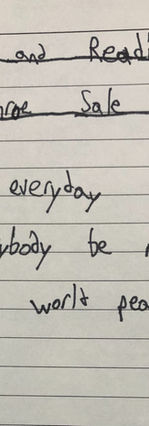 and Readi
Sale
everyday
ybody be
world pea